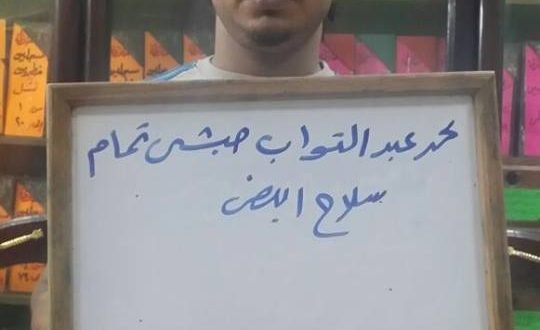 محمد عبد التواب حبشى تمام
سلاح ابيض